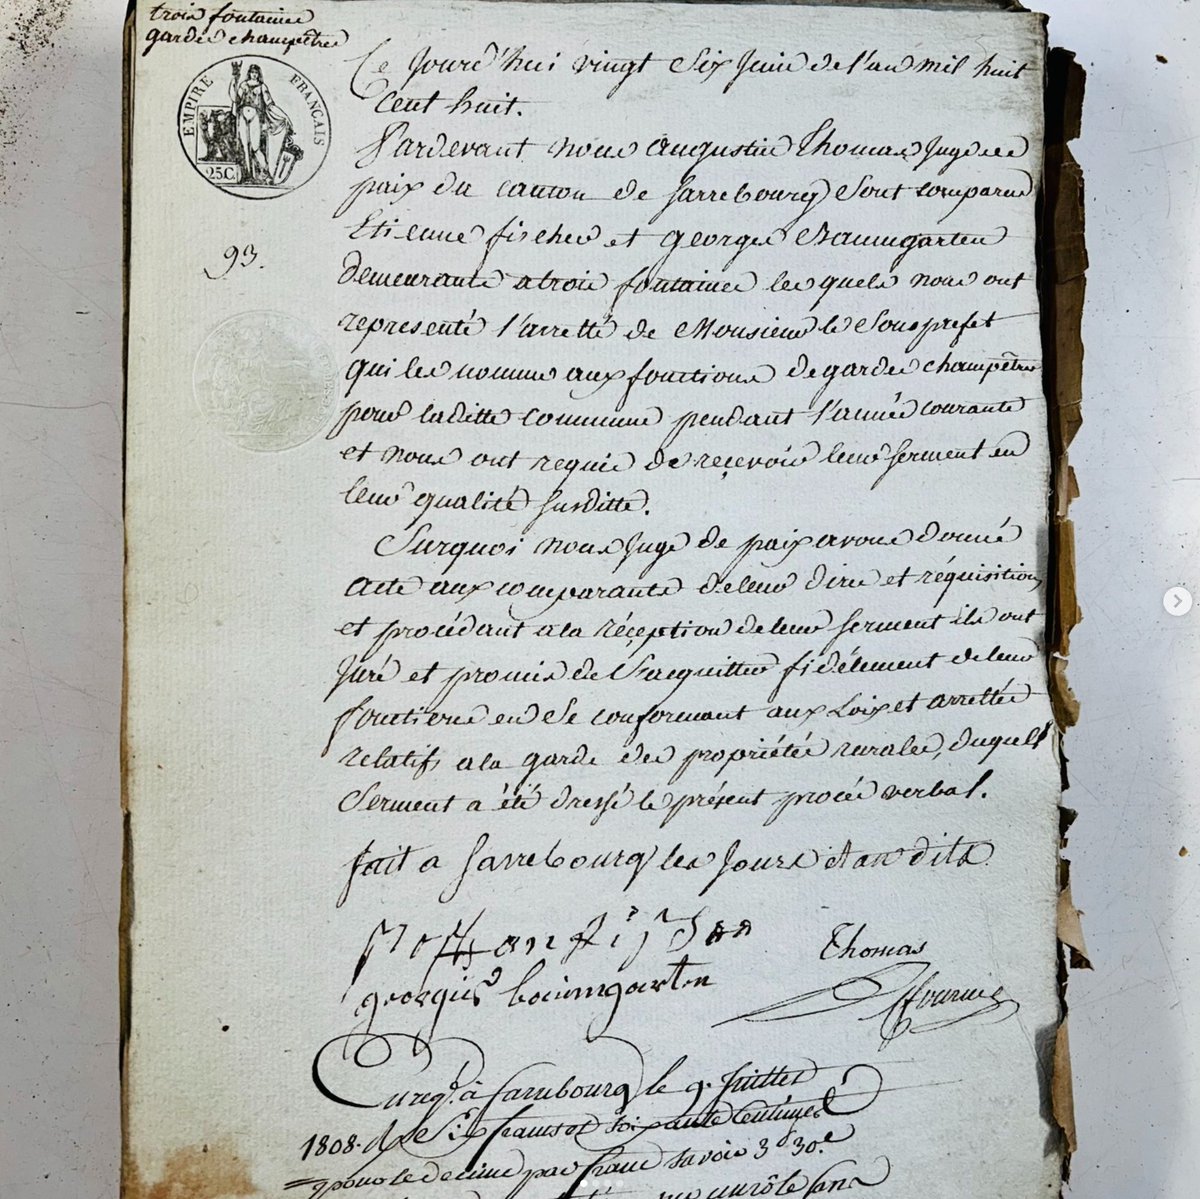 trois fontaines
gardes champêtres
EMPIRE FRANÇAIS
25C.
93.
Ce Jourd'hui vingt Six Juin de l'an mil huit
Cent huit.
Pardevant nous augustin Thomas, Juge de
paix du canton de Sarrebourg Sont comparus
Etienne fischer et georges Baumgarten
demeurants a trois fontaines les quels nous ont
representé l'arretté de Monsieur le Sous prefet
qui les nomme aux fonctions de gardes champêtres
pour laditte commune pendant l'année courante
et nous ont requis de reçevoir leur serment en
leur qualité susditte.
Surquoi nous Juge de paix avons donné
acte aux comparants de leur dire et réquisition,
et procédant a la réçeption de leur serment ils ont
Juré et promis de S'acquitter fidélement de leurs
fonctions en Se conformant aux Loix et arrettés
relatifs a la garde des propriétés rurales, duquel
Serment a été dressé le présent procés verbal.
fait a Sarrebourg les Jours et an dits
georgius baumgarten
Thomas
Enreg. à Sarrebourg le 9. Juillet
1808. Six francs soixante Centimes
pour le decime par franc savoir 3 30.